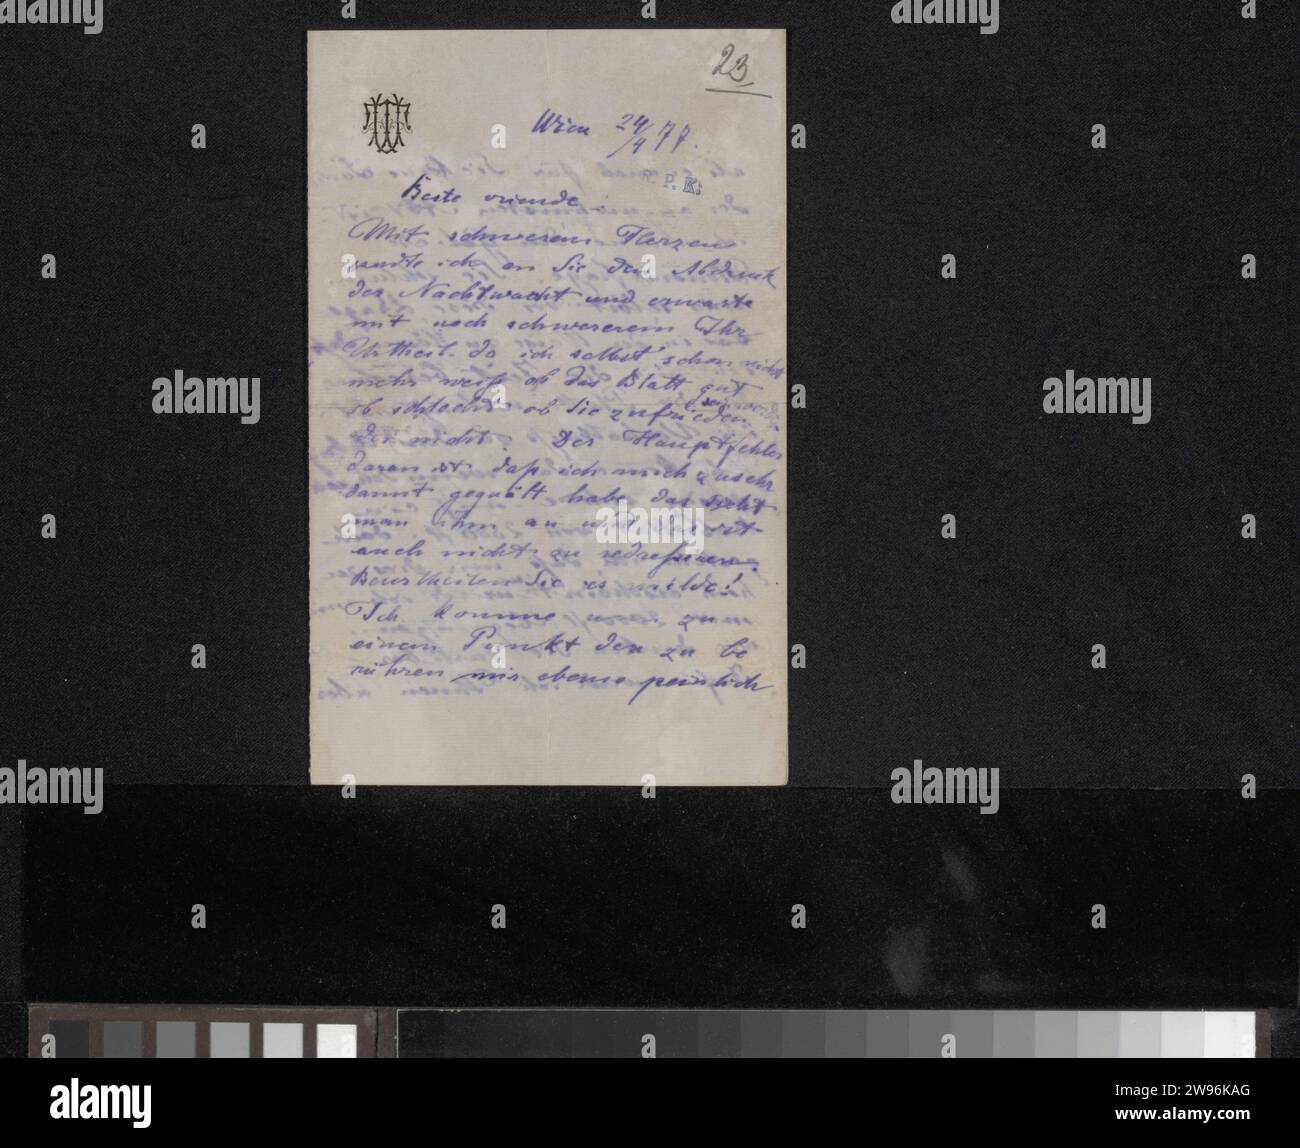 23
Wien 24/4 77.
R. P. K.
Beste vriende!
Mit schwerem Herzen
sandte ich an Sie den Abdruck
der Nachtwacht und erwarte
mit noch schwererem Ihr
Urtheil. da ich selbst schon nicht
mehr weiß ob das Blatt gut
ob schlecht ob Sie zufrieden sein
den nicht. Der Hauptfehler
daran ist daß ich mich zusehr
damit gequält habe das sieht
man ihm an und das ist
auch nicht zu redressiren.
Beurtheilen Sie es milde!
Ich komme nun zu
einem Punkt den zu be
rühren mir ebenso peinlich
alamy
Image ID: 2W96KAG
www.alamy.com